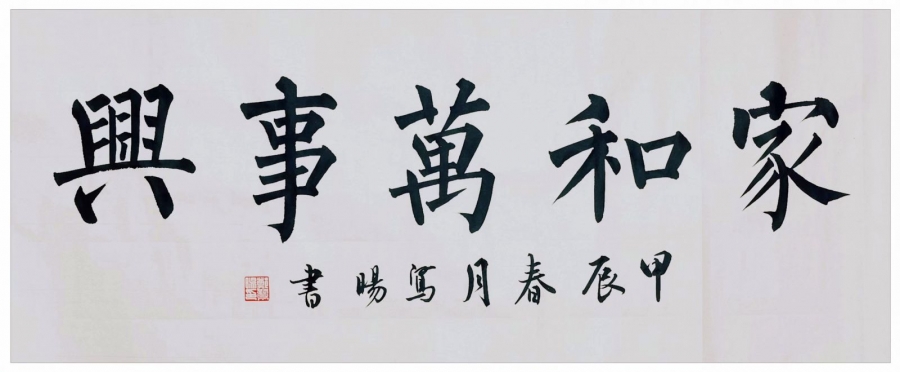 家和萬事興
甲辰春月寫暘書